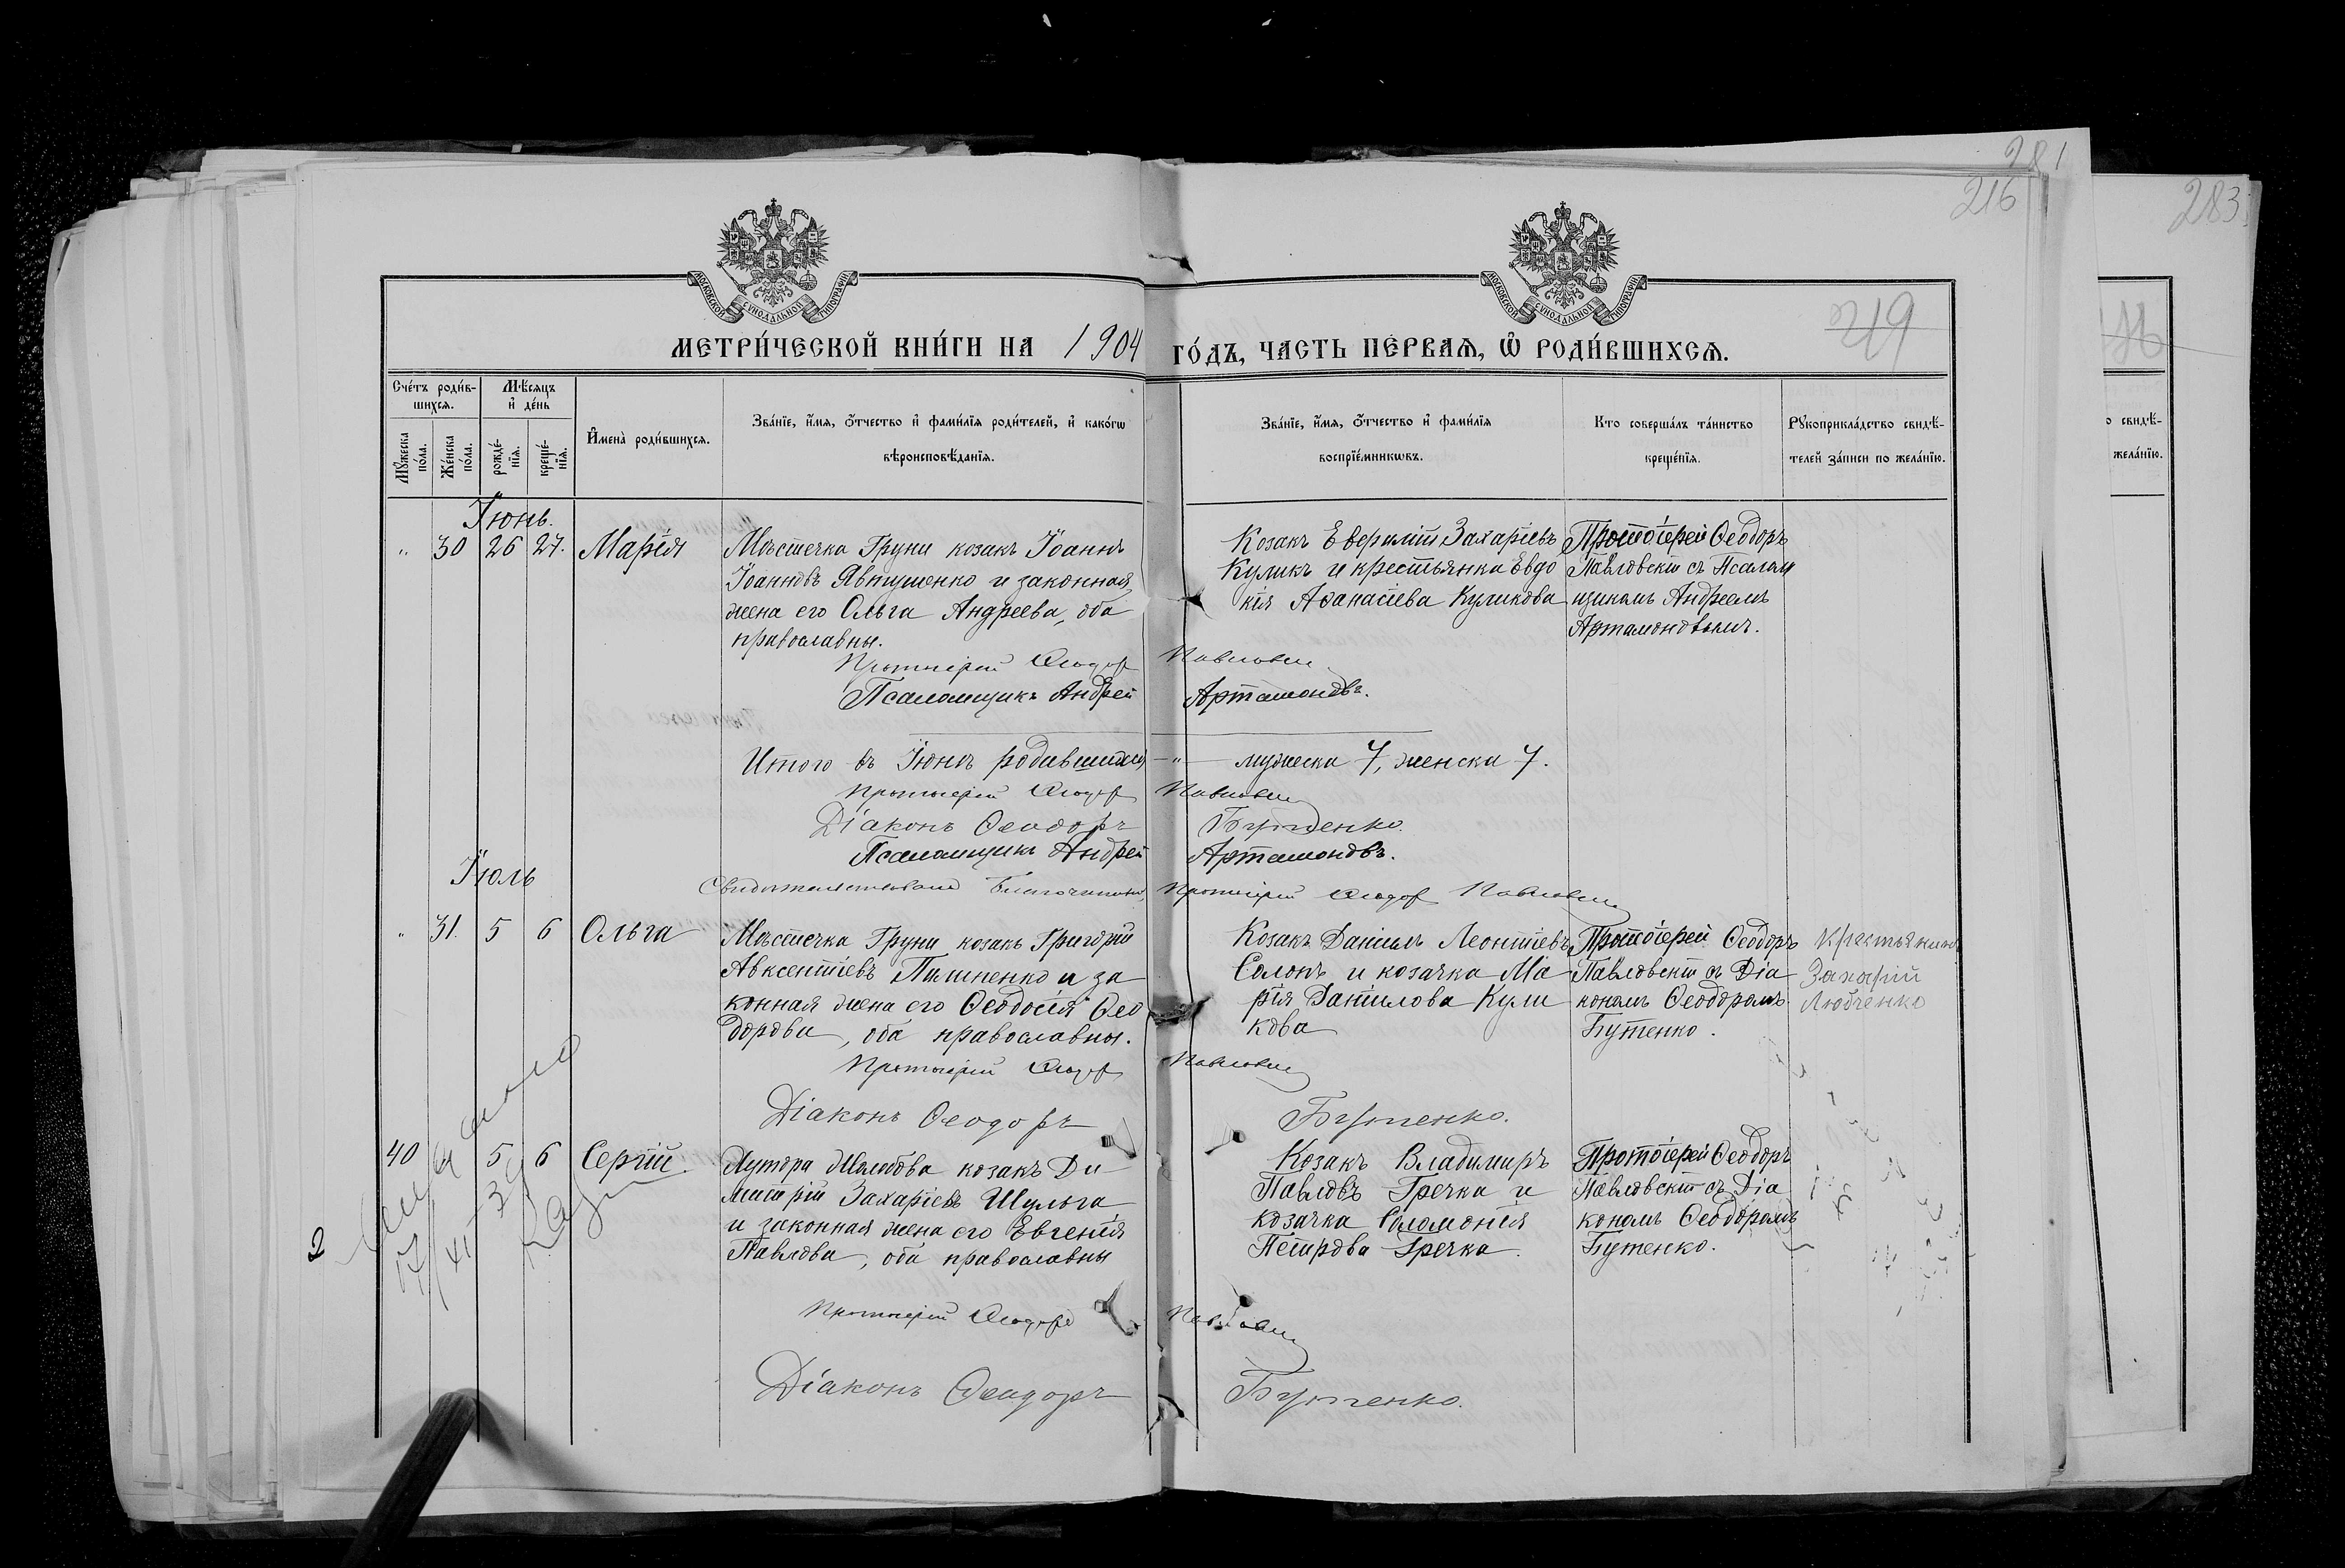 281
216
283
МОСКОВСКОЙ СѴНОДАЛЬНОЙ ТИПОГРАФІИ
МОСКОВСКОЙ СѴНОДАЛЬНОЙ ТИПОГРАФІИ
219
МЕТРИ́ЧЕСКОЙ КНИ́ГИ НА 1904 ГО́ДЪ, ЧАСТЬ ПЕ́РВАЯ, Ѡ РОДИ́ВШИХСЯ.
Сче́тъ роди́в-
шихся.
Мѣ́сяцъ
и де́нь
Мꙋжеска по́ла.
Же́нска по́ла.
рожде́-нїя.
креще́-нїя.
Имена̀ роди́вшихся.
Зва́нїе, и́мя, о́тчество и фами́лїя роди́телей, и како́гѡ
вѣроисповѣ́данїя.
Зва́нїе, и́мя, о́тчество и фами́лїя
воспрїе́мникѡвъ.
Кто соверша́лъ та́инство
креще́нїя.
Рꙋкоприкла́дство свидѣ́-
телей за́писи по жела́нїю.
о свидѣ́-
жела́нїю.
Іюнь.
" 30 26 27. Марія
Мѣстечка Груни козакъ Іоаннъ
Іоанновъ Явтушенко и законная
жена его Ольга Андреева, оба
православны.
Козакъ Евфимій Захаріевъ
Куликъ и крестьянка Евдо
кія Аѳанасіева Куликова
Протоіерей Ѳеодоръ
Павловскій съ Псалом
щикомъ Андреемъ
Артамоновымъ.
Протоіерей Ѳеодоръ Павловскій
Псаломщикъ Андрей Артамоновъ.
Итого въ Іюнѣ родившихся — " — мужеска 7, женска 7.
Протоіерей Ѳеодоръ Павловскій
Діаконъ Ѳеодоръ Бутенко.
Псаломщикъ Андрей Артамоновъ.
Іюль
Протоіерей Ѳеодоръ Павловскій
" 31. 5 6 Ольга
Мѣстечка Груни козакъ Григорій
Авксентіевъ Пилипенко и за
конная жена его Ѳеодосія Ѳео
дорова, оба православны.
Козакъ Даніилъ Леонтіевъ
Солонъ и козачка Ма
рія Данилова Кули
кова
Протоіерей Ѳеодоръ
Павловскій съ Діа
кономъ Ѳеодоромъ
Бутенко.
Крестьянинъ
Захарій
Любченко
Протоіерей Ѳеодоръ Павловскій
Діаконъ Ѳеодоръ Бутенко.
40 5 6 Сергій.
Хутора козакъ Ди
митрій Захаріевъ Шульга
и законная жена его Евгенія
Павлова, оба православны
Козакъ Владимиръ
Павловъ Гречка и
козачка Соломонія
Петрова Гречка.
Протоіерей Ѳеодоръ
Павловскій съ Діа
кономъ Ѳеодоромъ
Бутенко.
2
Протоіерей Ѳеодоръ Павловскій
Діаконъ Ѳеодоръ Бутенко.